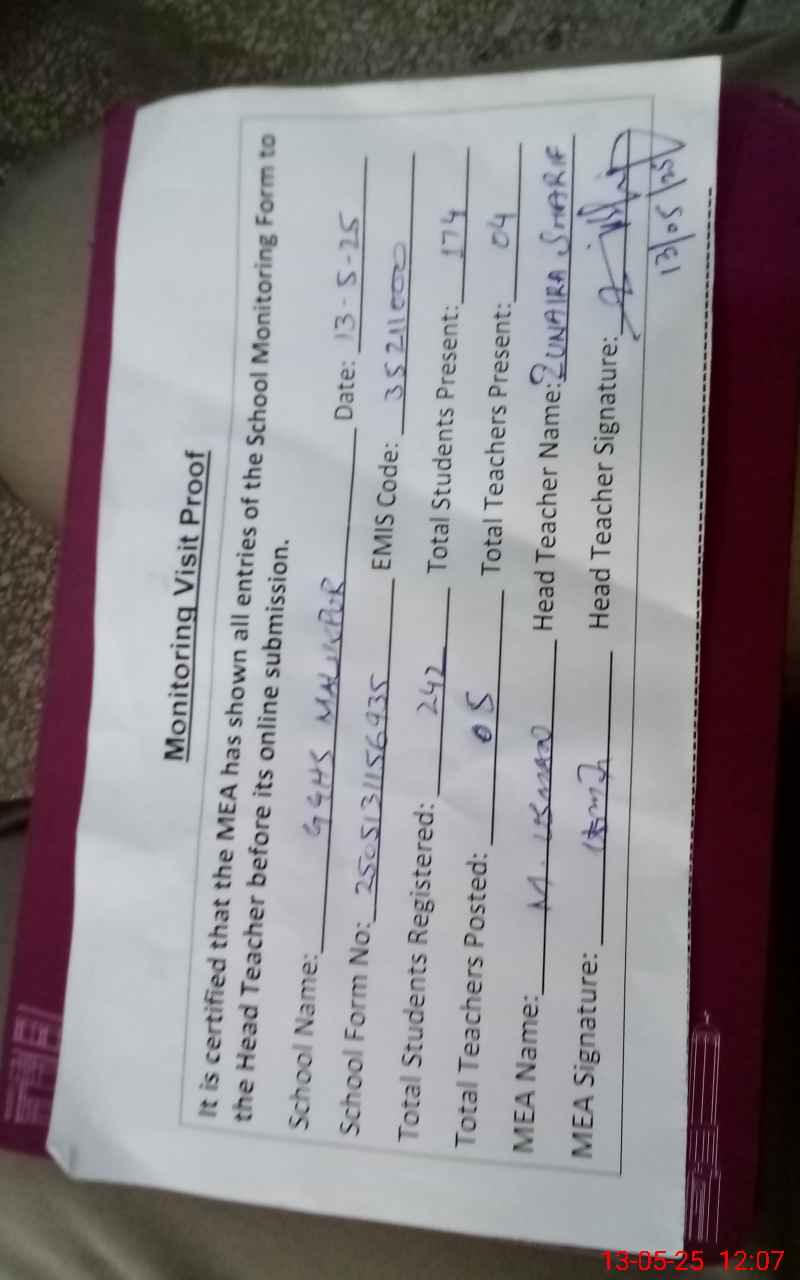 Monitoring Visit Proof
It is certified that the MEA has shown all entries of the School Monitoring Form to
the Head Teacher before its online submission.
School Name: GGHS MALIKPUR Date: 13-5-25
School Form No: 2505131156935 EMIS Code: 35211000
Total Students Registered: 242 Total Students Present: 174
Total Teachers Posted: 05 Total Teachers Present: 04
MEA Name: M. USMAN Head Teacher Name: ZUNAIRA SHARIF
MEA Signature: Head Teacher Signature:
13/05/25
13-05-25 12:07